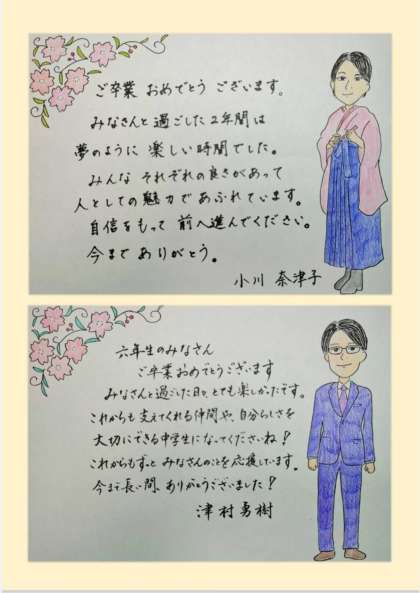 ご卒業 おめでとう ございます。
みなさんと 過ごした 2年間は
夢のように 楽しい時間でした。
みんな それぞれの 良さがあって
人としての 魅力で あふれています。
自信をもって 前へ進んでください。
今まで ありがとう。
小川 奈津子
六年生のみなさん
ご卒業おめでとうございます
みなさんと過ごした日々、とても楽しかったです。
これからも 支えてくれる仲間や、自分らしさを
大切にできる中学生になってくださいね!
これからもずっと みなさんのことを 応援しています。
今まで長い間、ありがとうございました!
津村勇樹